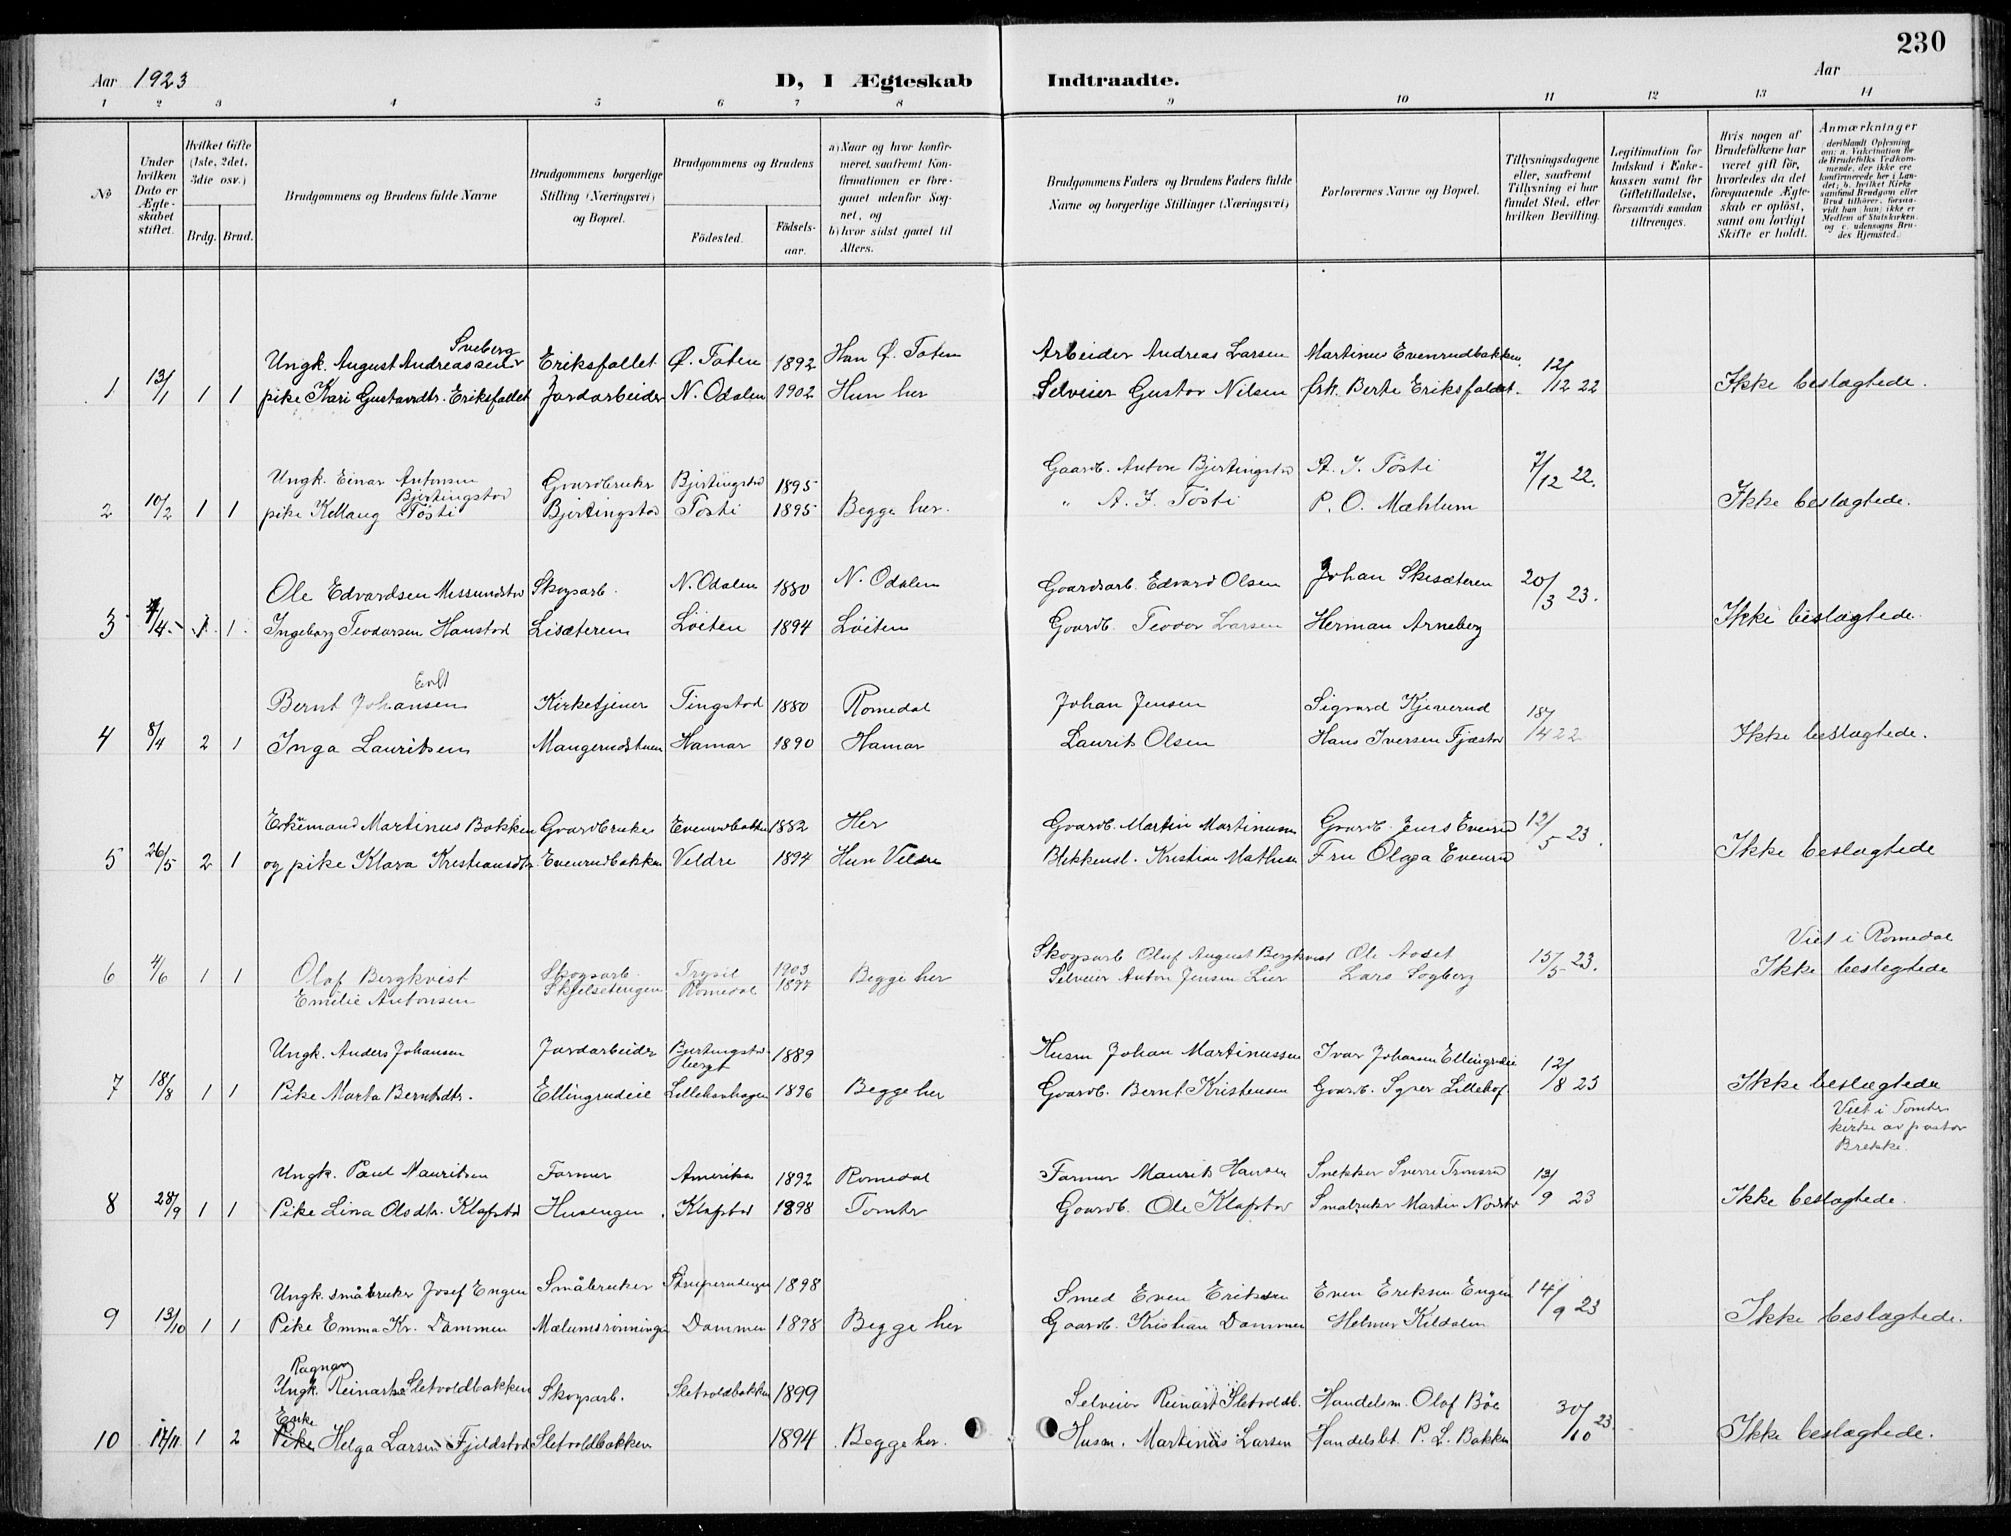 230
Aar 1923
D, I Ægteskab Indtraadte.
Aar
1 2 3 4 5 6 7 8 9 10 11 12 13 14
No
Under hvilken Dato er Ægteskabet stiftet.
Hvilket Gifte (1ste, 2det, 3die osv.)
Brdg. Brud.
Brudgommens og Brudens fulde Navne
Brudgommens borgerlige Stilling (Næringsvei) og Bopæl.
Brudgommens og Brudens
Födested.
Födselsaar.
a) Naar og hvor konfirmeret, saafremt Konfirmationen er foregaaet udenfor Sognet, og
b) hvor sidst gaaet til Alters.
Brudgommens Faders og Brudens Faders fulde Navne og borgerlige Stillinger (Næringsvei)
Forlovernes Navne og Bopæl.
Tillysningsdagene eller, saafremt Tillysning ei har fundet Sted, efter hvilken Bevilling.
Legitimation for Indskud i Enkekassen samt for Giftetilladelse, forsaavidt saadan tiltrænges.
Hvis nogen af Brudefolkene har været gift för, hvorledes da det foregaaende Ægteskab er oplöst, samt om lovligt Skifte er holdt.
Anmærkninger
Sveberg
Ungk. August Andreassen Eriksfallet Ø. Toten 1892 Han Ø. Toten Arbeider Andreas Larsen Martinus Evenrudbakken 12/12 22
1 13/1 1 1 pike Kari Gustavdtr. Eriksfallet Jordarbeider N. Odalen 1902 Hun her Selveier Gustav Nilsen frk. Berte Eriksfallet. Ikke beslægtede.
Ungk. Einar Antonsen Gaardbruker Bjertingstad 1895 Gaardb. Anton Bjertingstad A. J. Tösti 7/12 22.
Bjertingstad
2 10/2 1 1 pike Tösti Bjertingstad Tosti 1895 Begge her. " A. J. Tösti P. O. Mæhlum Ikke beslægtede.
Ole Edvardsen Messunstad Skogsarb. N. Odalen 1880 N. Odalen Gaardsarb. Edvard Olsen Johan Skesæteren 20/3 23.
3 4/4 1 1 Ingeborg Teodorsen Hanstad Lisæteren Löiten 1894 Löiten Gaardb. Teodor Larsen Herman Arneberg Ikke beslægtede.
Bernt Johansen Kirketjener Tingstad 1880 Romedal Johan Jensen Sigvard Kjeverud
4 8/4 2 1 Inga Lauritsen Hamar 1890 Hamar Laurits Olsen Hans Iversen Fjæstad Ikke beslægtede.
Enkemand Martinus Bakken Gaardbruker Evenrudbakken 1882 Her Gaardb. Martin Martinussen Gaardb. Jens Evenrud 12/5 23.
5 26/5 2 1 og pike Klara Kristiansdtr. Evenrudbakken Veldre 1894 Hun Veldre Kristian Mathisen Fru Olaga Evenrud Ikke beslægtede
Viet i Romedal
6 4/6 1 1 Olaf Bergkvist Skogsarb. Trysil 1903 Begge her Skogsarb Oluf August Bergkvist Ole Aodet 15/5 23. Ikke beslegtede
Emilie Antonsen Skjelsetengen Romedal 1897 Selveier Anton Jensen Lier Lars Sogberg
Ungk. Anders Johansen Jordarbeider Bjertingstad 1889 Husm Johan Martinussen Ivar Johansen Ellingsdeie 12/8 23
7 18/8 1 1 Pike Marta Berntsdtr. Ellingrudeie Lillehovhagen 1896 Begge her Gaardb. Bernt Kristensen Gaardb. Syver Lillehof Ikke beslægtede
Viet i Tomter kirke av pastor Brekke.
Ungk. Paul Mauritsen Farmer Amerika 1892 Romedal Farmer Maurits Hansen Snekker Sverre Tronsrud 13/9 23
8 28/9 1 1 Pike Lina Olsdtr. Klafstad Husengen Klafstad 1898 Tomter Gaardb. Ole Klafstad Småbruker Martin Nordstad Ikke beslægtede.
Ungk. småbruker Josef Engen Småbruker Struperudengen 1898 Smed Even Eriksen Even Eriksen Engen 14/9 23
9 13/10 1 1 Pike Emma Kr. Dammen Mælumsrönningen Dammen 1898 Begge her Gaardb. Kristian Dammen Helmer Kildalen Ikke beslægtede.
Ragnar
Ungk. Reinart Sletvoldbakken Skogsarb. Sletvoldbakken 1899 Selveier Reinart Sletvoldb. Handelsm. Olaf Böe 30/10 23
Enke
10 17/11 1 2 Pike Helga Larsen Fjeldstad Sletvoldbakken 1894 Begge her. Husm. Martinus Larsen Handelsbt. P. L. Bakken Ikke beslægtede.